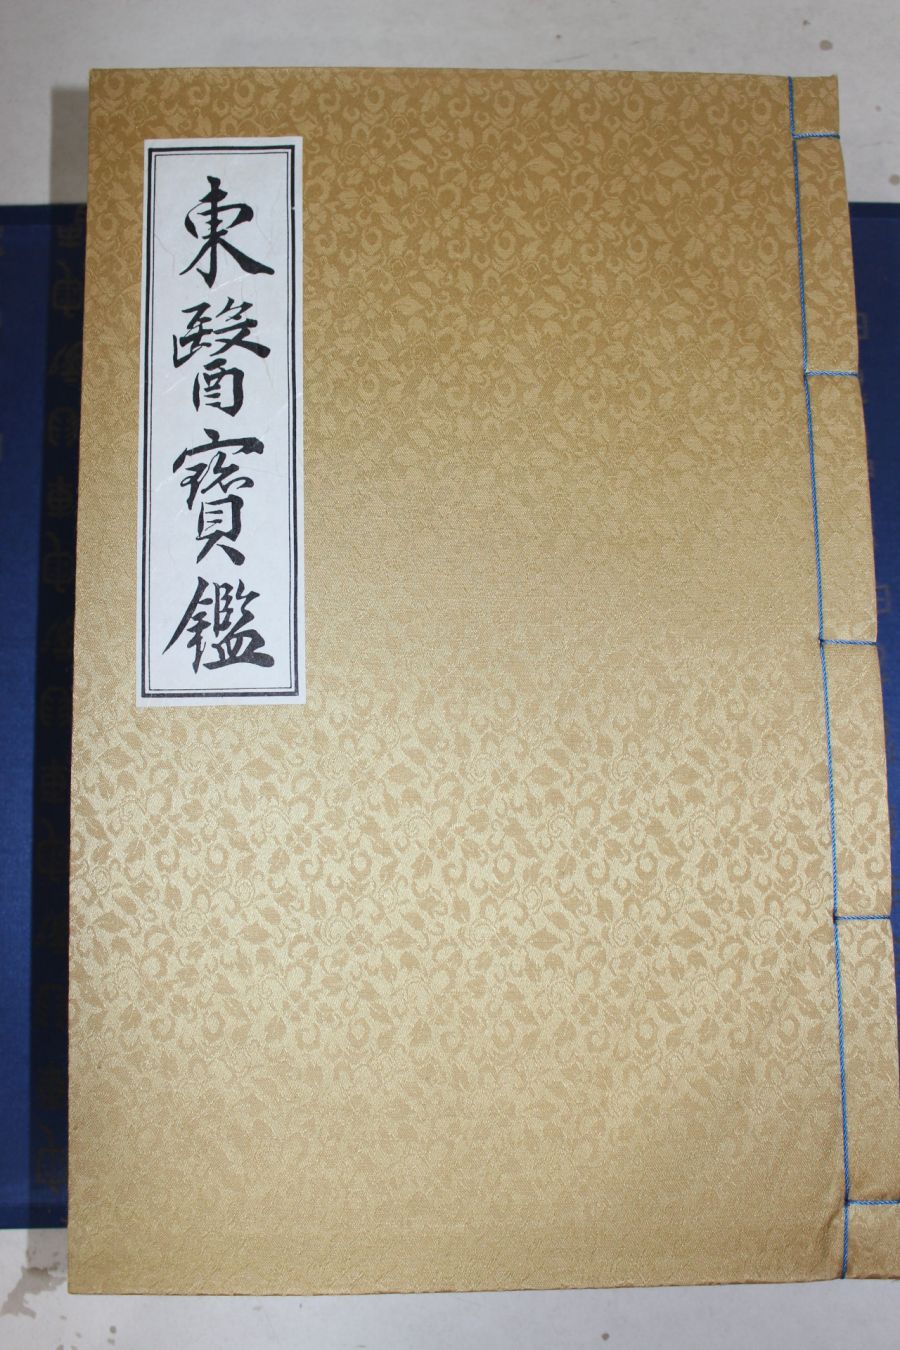 東醫寶鑑